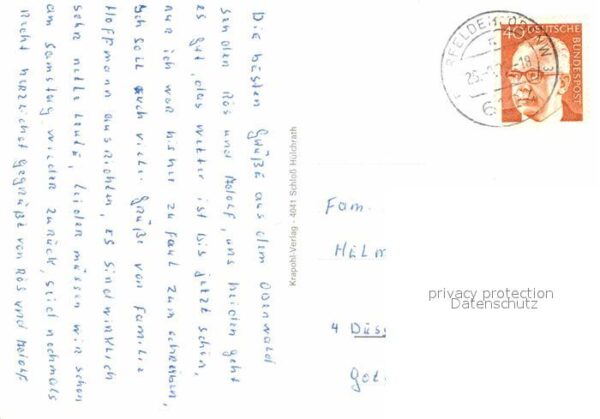 Die besten Grüße aus dem Odenwald
senden Ros und Adolf, uns beiden geht
es gut, das Wetter ist bis jetzt schön,
nur ich war bisher zu faul zum schreiben,
ich soll euch viele Grüße von Familie
Hoffmann ausrichten, es sind wirklich
sehr nette Leute, leider müssen wir schon
am Samstag wieder zurück, seid nochmals
recht herzlichst gegrüßt von Ros und Adolf
Krapohl-Verlag - 4041 Schloß Hülchrath
40 DEUTSCHE BUNDESPOST
Fam.
Helm
privacy protection
Datenschutz
4 Düs
Got